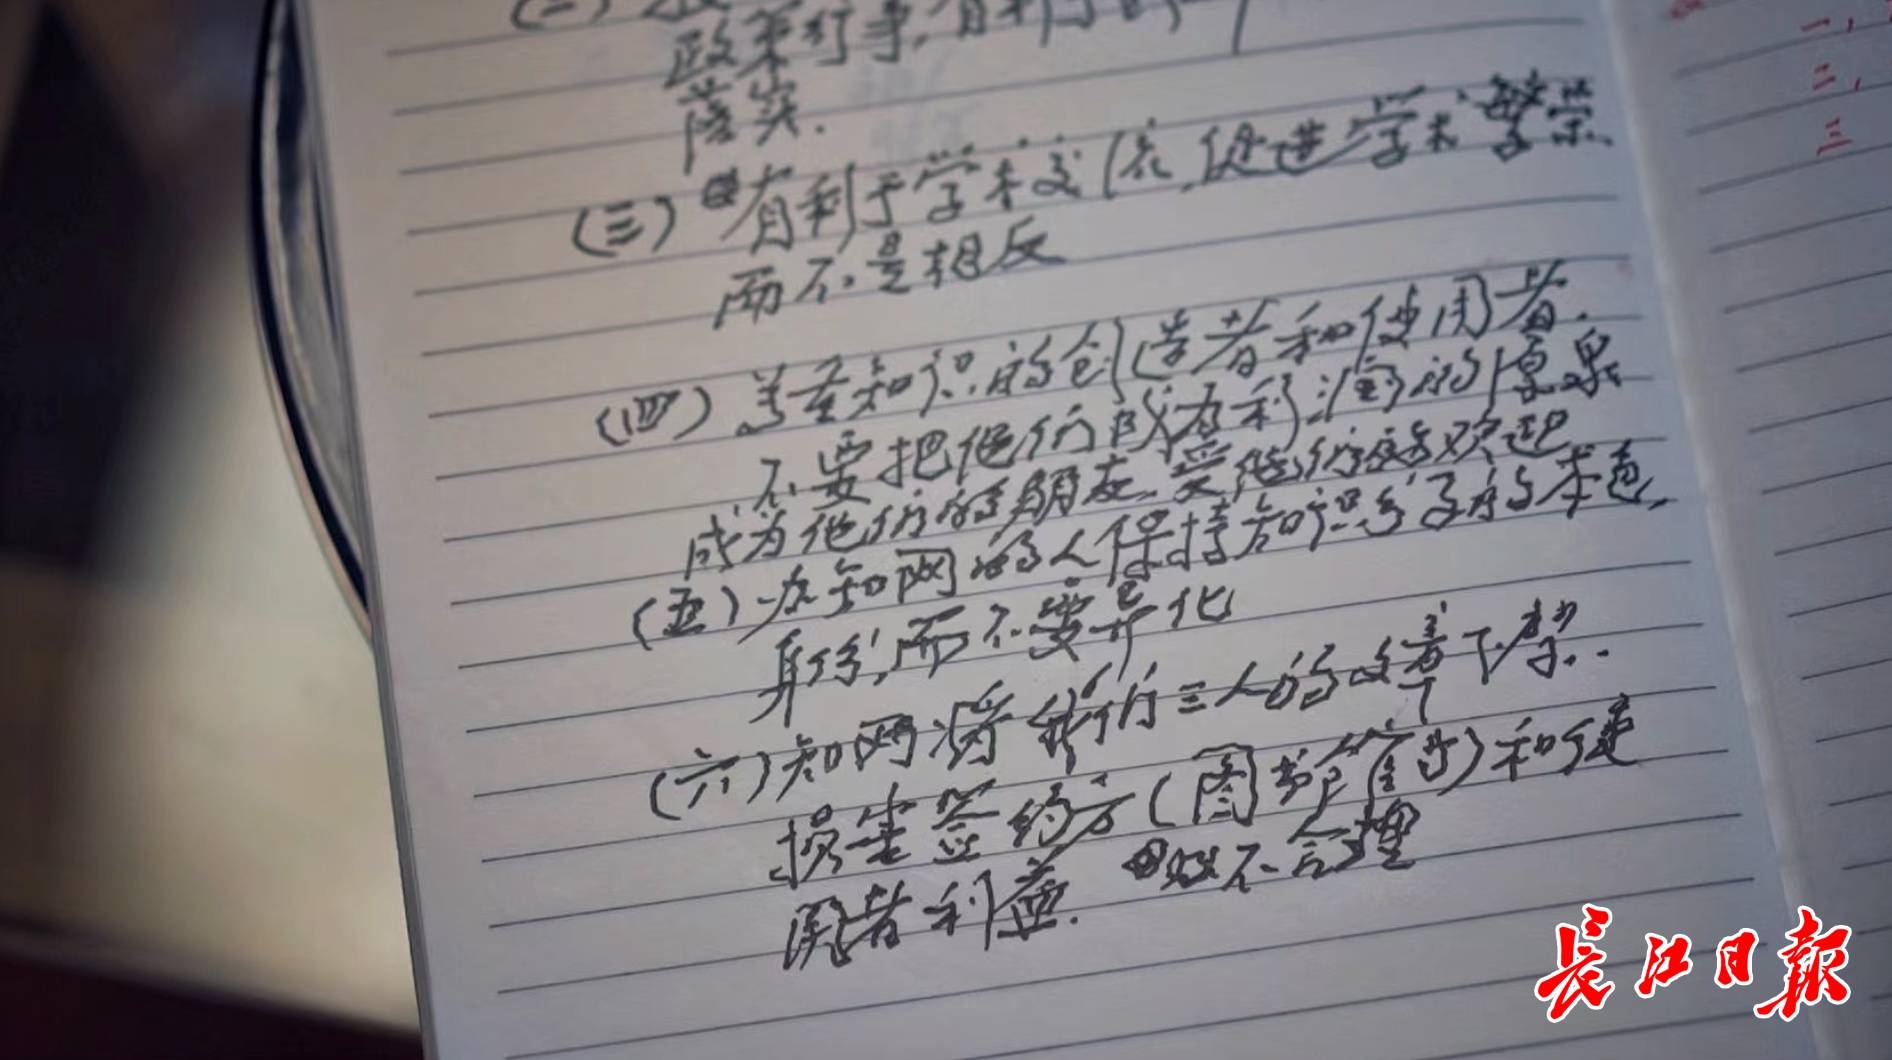 (二)
政策行事,有利于
落实.
(三)有利于学术交流,促进学术繁荣.
而不是相反
(四)尊重知识的创造者和使用者.
不要把他们成为利润的源泉
成为他们的朋友,受他们的欢迎
(五)办知网的人保持知识分子的本色,
身份,而不要异化
(六)知网将我们三人的文章下架..
损害签约方(图书馆等)和使
用者利益. 不合理
一,
二,
三
长江日报